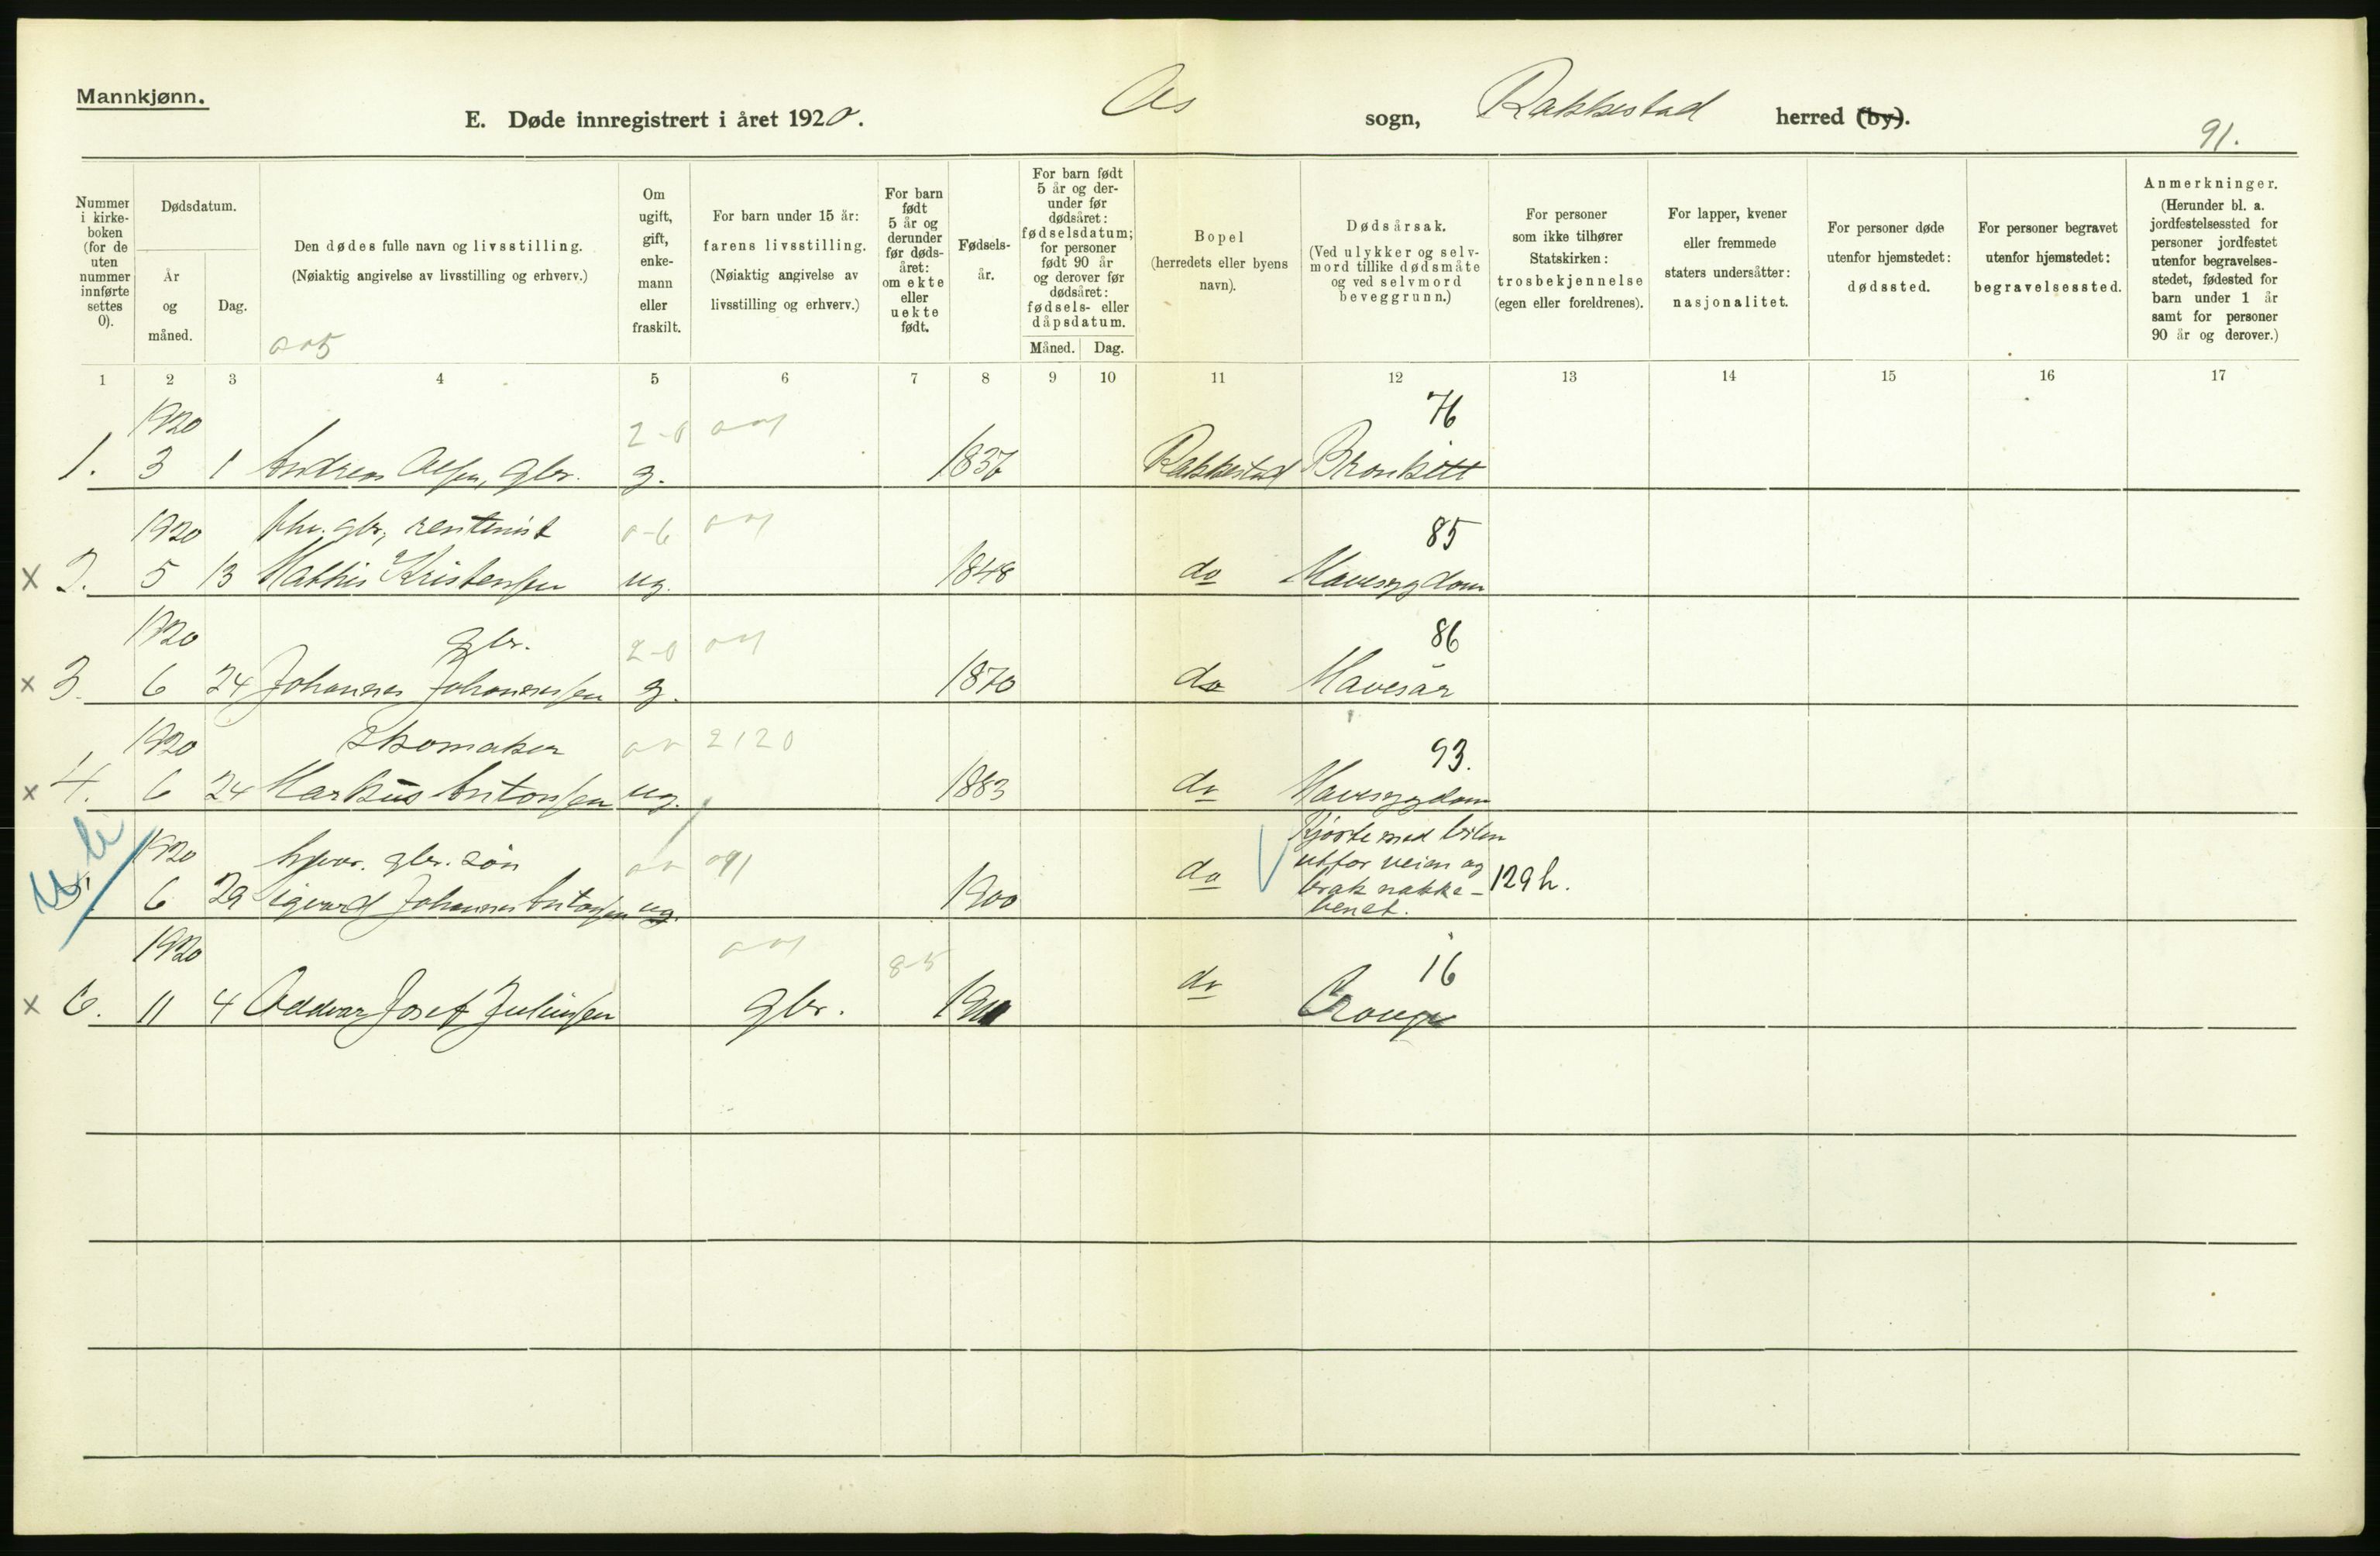 Mannkjønn.
E. Døde innregistrert i året 1920. Os sogn, Rakkestad herred (by).
91.
Nummer i kirke-boken (for de uten nummer innførte settes 0).
Dødsdatum.
År og måned.
Dag.
Den dødes fulle navn og livsstilling.
(Nøiaktig angivelse av livsstilling og erhverv.)
Om ugift, gift, enke-mann eller fraskilt.
For barn under 15 år: farens livsstilling.
(Nøiaktig angivelse av livsstilling og erhverv.)
For barn født 5 år og derunder før døds-året: om ekte eller uekte født.
Fødsels-år.
For barn født 5 år og der-under før dødsåret: fødselsdatum; for personer født 90 år og derover før dødsåret: fødsels- eller dåpsdatum.
Måned. Dag.
Bopel
(herredets eller byens navn).
Dødsårsak.
(Ved ulykker og selv-mord tillike dødsmåte og ved selvmord beveggrunn.)
For personer som ikke tilhører Statskirken: trosbekjennelse (egen eller foreldrenes).
For lapper, kvener eller fremmede staters undersåtter: nasjonalitet.
For personer døde utenfor hjemstedet: dødssted.
For personer begravet utenfor hjemstedet: begravelsessted.
Anmerkninger.
(Herunder bl. a. jordfestelsessted for personer jordfestet utenfor begravelses-stedet, fødested for barn under 1 år samt for personer 90 år og derover.)
1 2 3 4 5 6 7 8 9 10 11 12 13 14 15 16 17
1920 2-0 76
1. 3 1 Andreas Olsen, gbr. g. Rakkestad Bronkitt
1920 fhv. gbr, rentenist 0-6 85
x 2. 5 13 Mathis Kristensen ug. 1848 do Mavesygdom
1920 gbr. 2-0 86
x 3. 6 24 Johannes Johannessen g. 1870 do Mavesår
1920 Skomaker 2120 93.
x 4. 6 24 Markus Antonsen ug. 1883 do Mavesygdom
1920 gbr. søn Kjørte med bilen
utfor veien og
5. 6 29 Sigvard Johannes Antonsen ug. 1900 do brak nakke- 129 h.
benet.
1920 8-5 16
x 6. 11 4 Oddvar Josef Juliussen gbr. do Croup